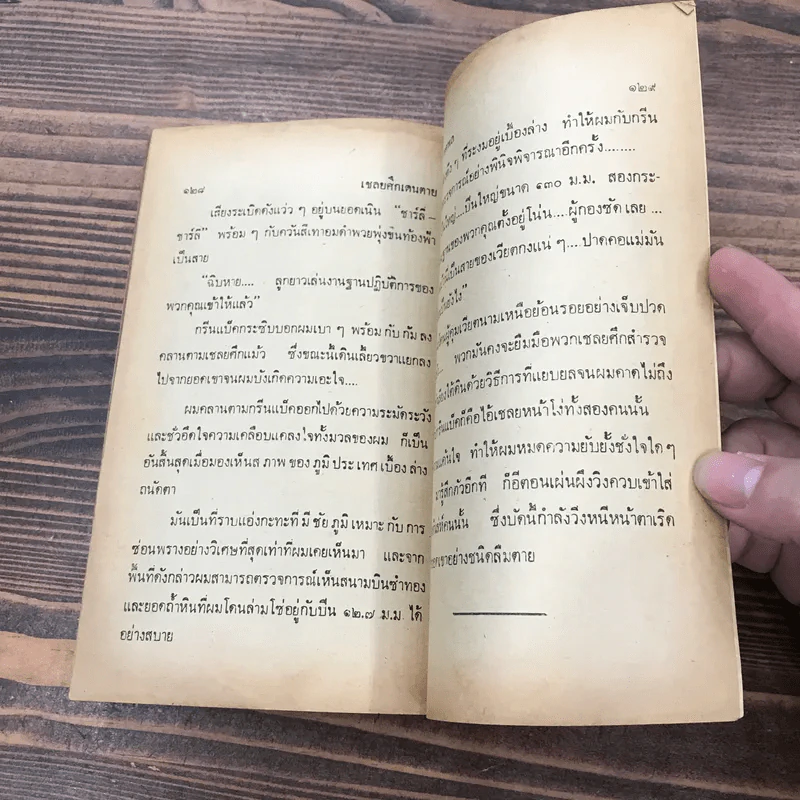 ๑๒๘
เชลยศึกเดนตาย
เสียงระเบิดดังแว่ว ๆ อยู่บนยอดเนิน “ชาร์ลี –
ชาร์ลี” พร้อม ๆ กับควันสีเทาอมดำพวยพุ่งขึ้นท้องฟ้า
เป็นสาย
“ฉิบหาย.... ลูกยาวเล่นงานฐานปฏิบัติการของ
พวกคุณเข้าให้แล้ว”
กรีนแบ็คกระซิบบอกผมเบา ๆ พร้อม กับ ก้ม ลง
คลานตามเชลยศึกแม้ว ซึ่งขณะนี้เดินเลี้ยวขวาแยกลง
ไปจากยอดเขาจนผมบังเกิดความเอะใจ....
ผมคลานตามกรีนแบ็คออกไปด้วยความระมัดระวัง
และชั่วอึดใจความเคลือบแคลงใจทั้งมวลของผม ก็เป็น
อันสิ้นสุดเมื่อมองเห็นส ภาพ ของ ภูมิ ประ เทศ เบื้อง ล่าง
ถนัดตา
มันเป็นที่ราบแอ่งกะทะที่ มี ชัย ภูมิ เหมาะ กับ การ
ซ่อนพรางอย่างวิเศษที่สุดเท่าที่ผมเคยเห็นมา และจาก
พื้นที่ดังกล่าวผมสามารถตรวจการณ์เห็นสนามบินซำทอง
และยอดถ้ำหินที่ผมโดนล่ามโซ่อยู่กับปืน ๑๒.๗ ม.ม ได้
อย่างสบาย
๑๒๙
ๆ ที่ระงมอยู่เบื้องล่าง ทำให้ผมกับกรีน
อย่างพินิจพิจารณาอีกครั้ง........
ปืนใหญ่ขนาด ๑๓๐ ม.ม. สองกระ-
ของพวกคุณตั้งอยู่โน่น....ผู้กองซัด เลย ...
เป็นสายของเวียตกงแน่ ๆ.... ปาดคอแม่มัน
ยังไง”
คุมเวียตนามเหนือย้อนรอยอย่างเจ็บปวด
พวกมันคงจะยืมมือพวกเชลยศึกสำรวจ
ใต้ดินด้วยวิธีการที่แยบยลจนผมคาดไม่ถึง
กรีนแบ็คก็คือไอ้เชลยหน้าโง่ทั้งสองคนนั้น
แค้นใจ ทำให้ผมหมดความยับยั้งชั่งใจใด ๆ
รู้สึกตัวอีกที ก็อีตอนเผ่นผึงวิ่งควบเข้าใส่
คนนั้น ซึ่งบัดนี้กำลังวิ่งหนีหน้าตาเริด
อย่างชนิดลืมตาย